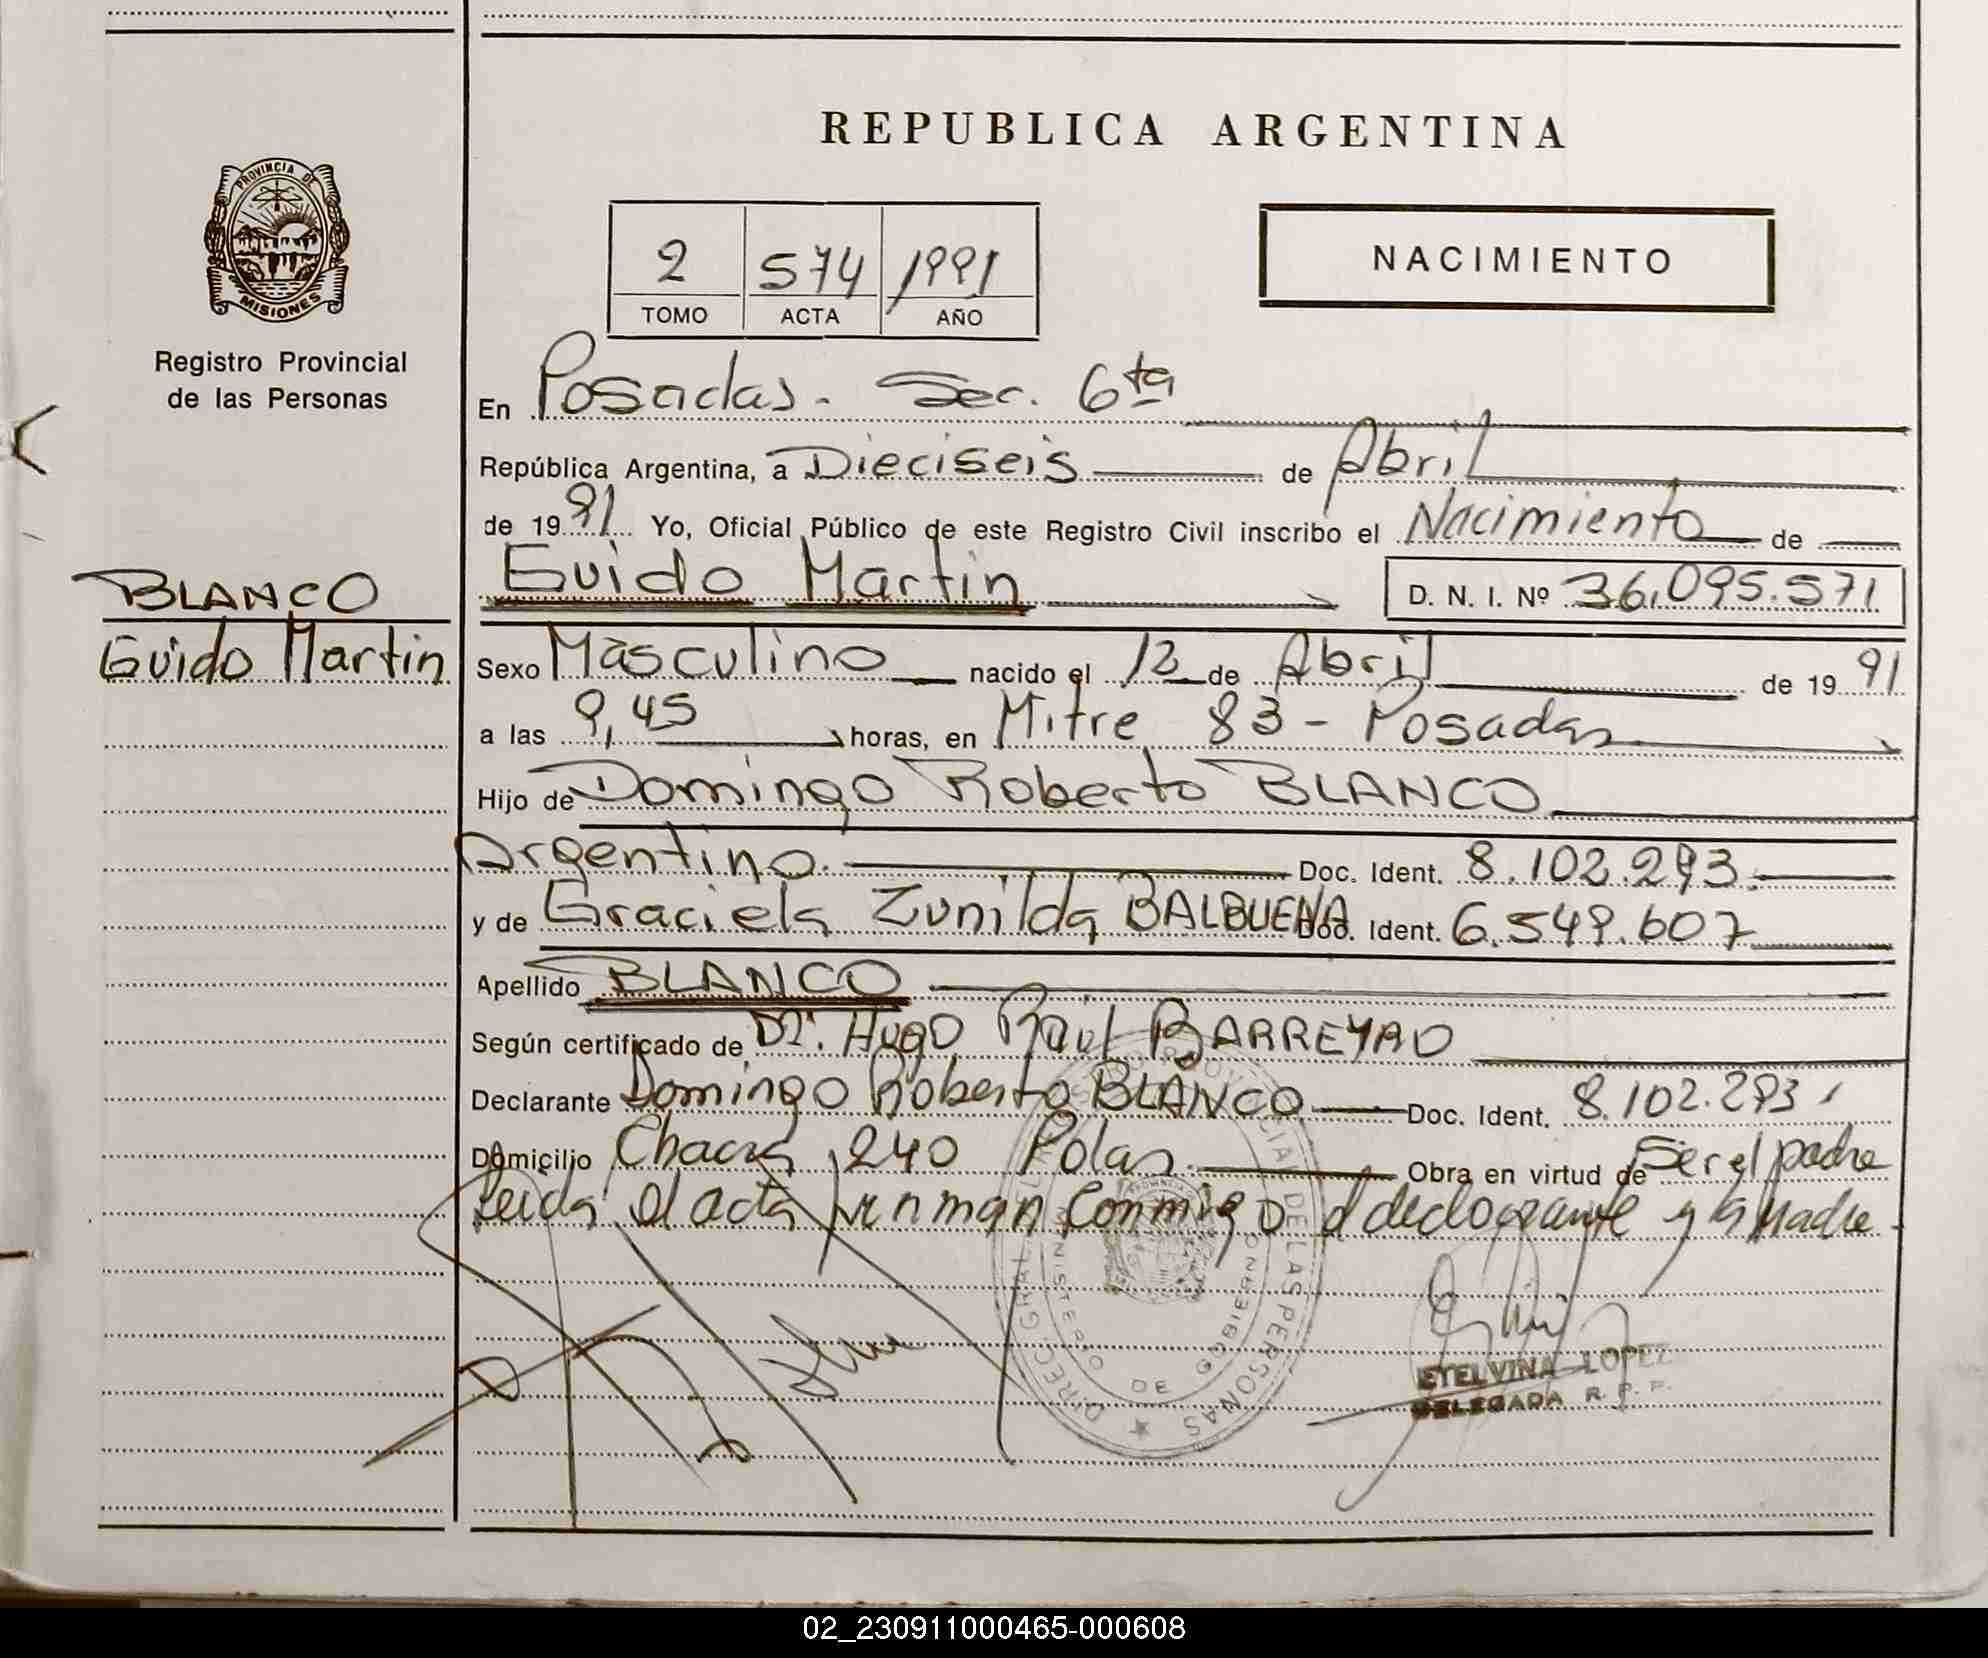 REPUBLICA ARGENTINA
PROVINCIA DE
MISIONES
Registro Provincial
de las Personas
2 574 1991
TOMO ACTA AÑO
NACIMIENTO
En Posadas. Sec. 6ta
República Argentina, a Dieciseis de Abril
de 1991 Yo, Oficial Público de este Registro Civil inscribo el Nacimiento de
BLANCO
Guido Martin
Guido Martin D. N. I. Nº 36.095.571
Sexo Masculino nacido el 12 de Abril de 1991
a las 9,45 horas, en Mitre 83 - Posadas
Hijo de Domingo Roberto BLANCO
Argentino. Doc. Ident. 8.102.293.
y de Graciela Zunilda BALBUENA Doc. Ident. 6.549.607
Apellido BLANCO
Según certificado de Dr. Hugo Raúl BARREYRO
Declarante Domingo Roberto BLANCO Doc. Ident. 8.102.293
Domicilio Chacra 240 Pdas. Obra en virtud de Ser el padre
Leida el acta firman Conmigo el declarante y la Madre.
DIREC. GRAL. DEL REGISTRO PROVINCIAL DE LAS PERSONAS
MINISTERIO DE GOBIERNO
ETELVINA LOPEZ
DELEGADA R. P. P.
02_230911000465-000608